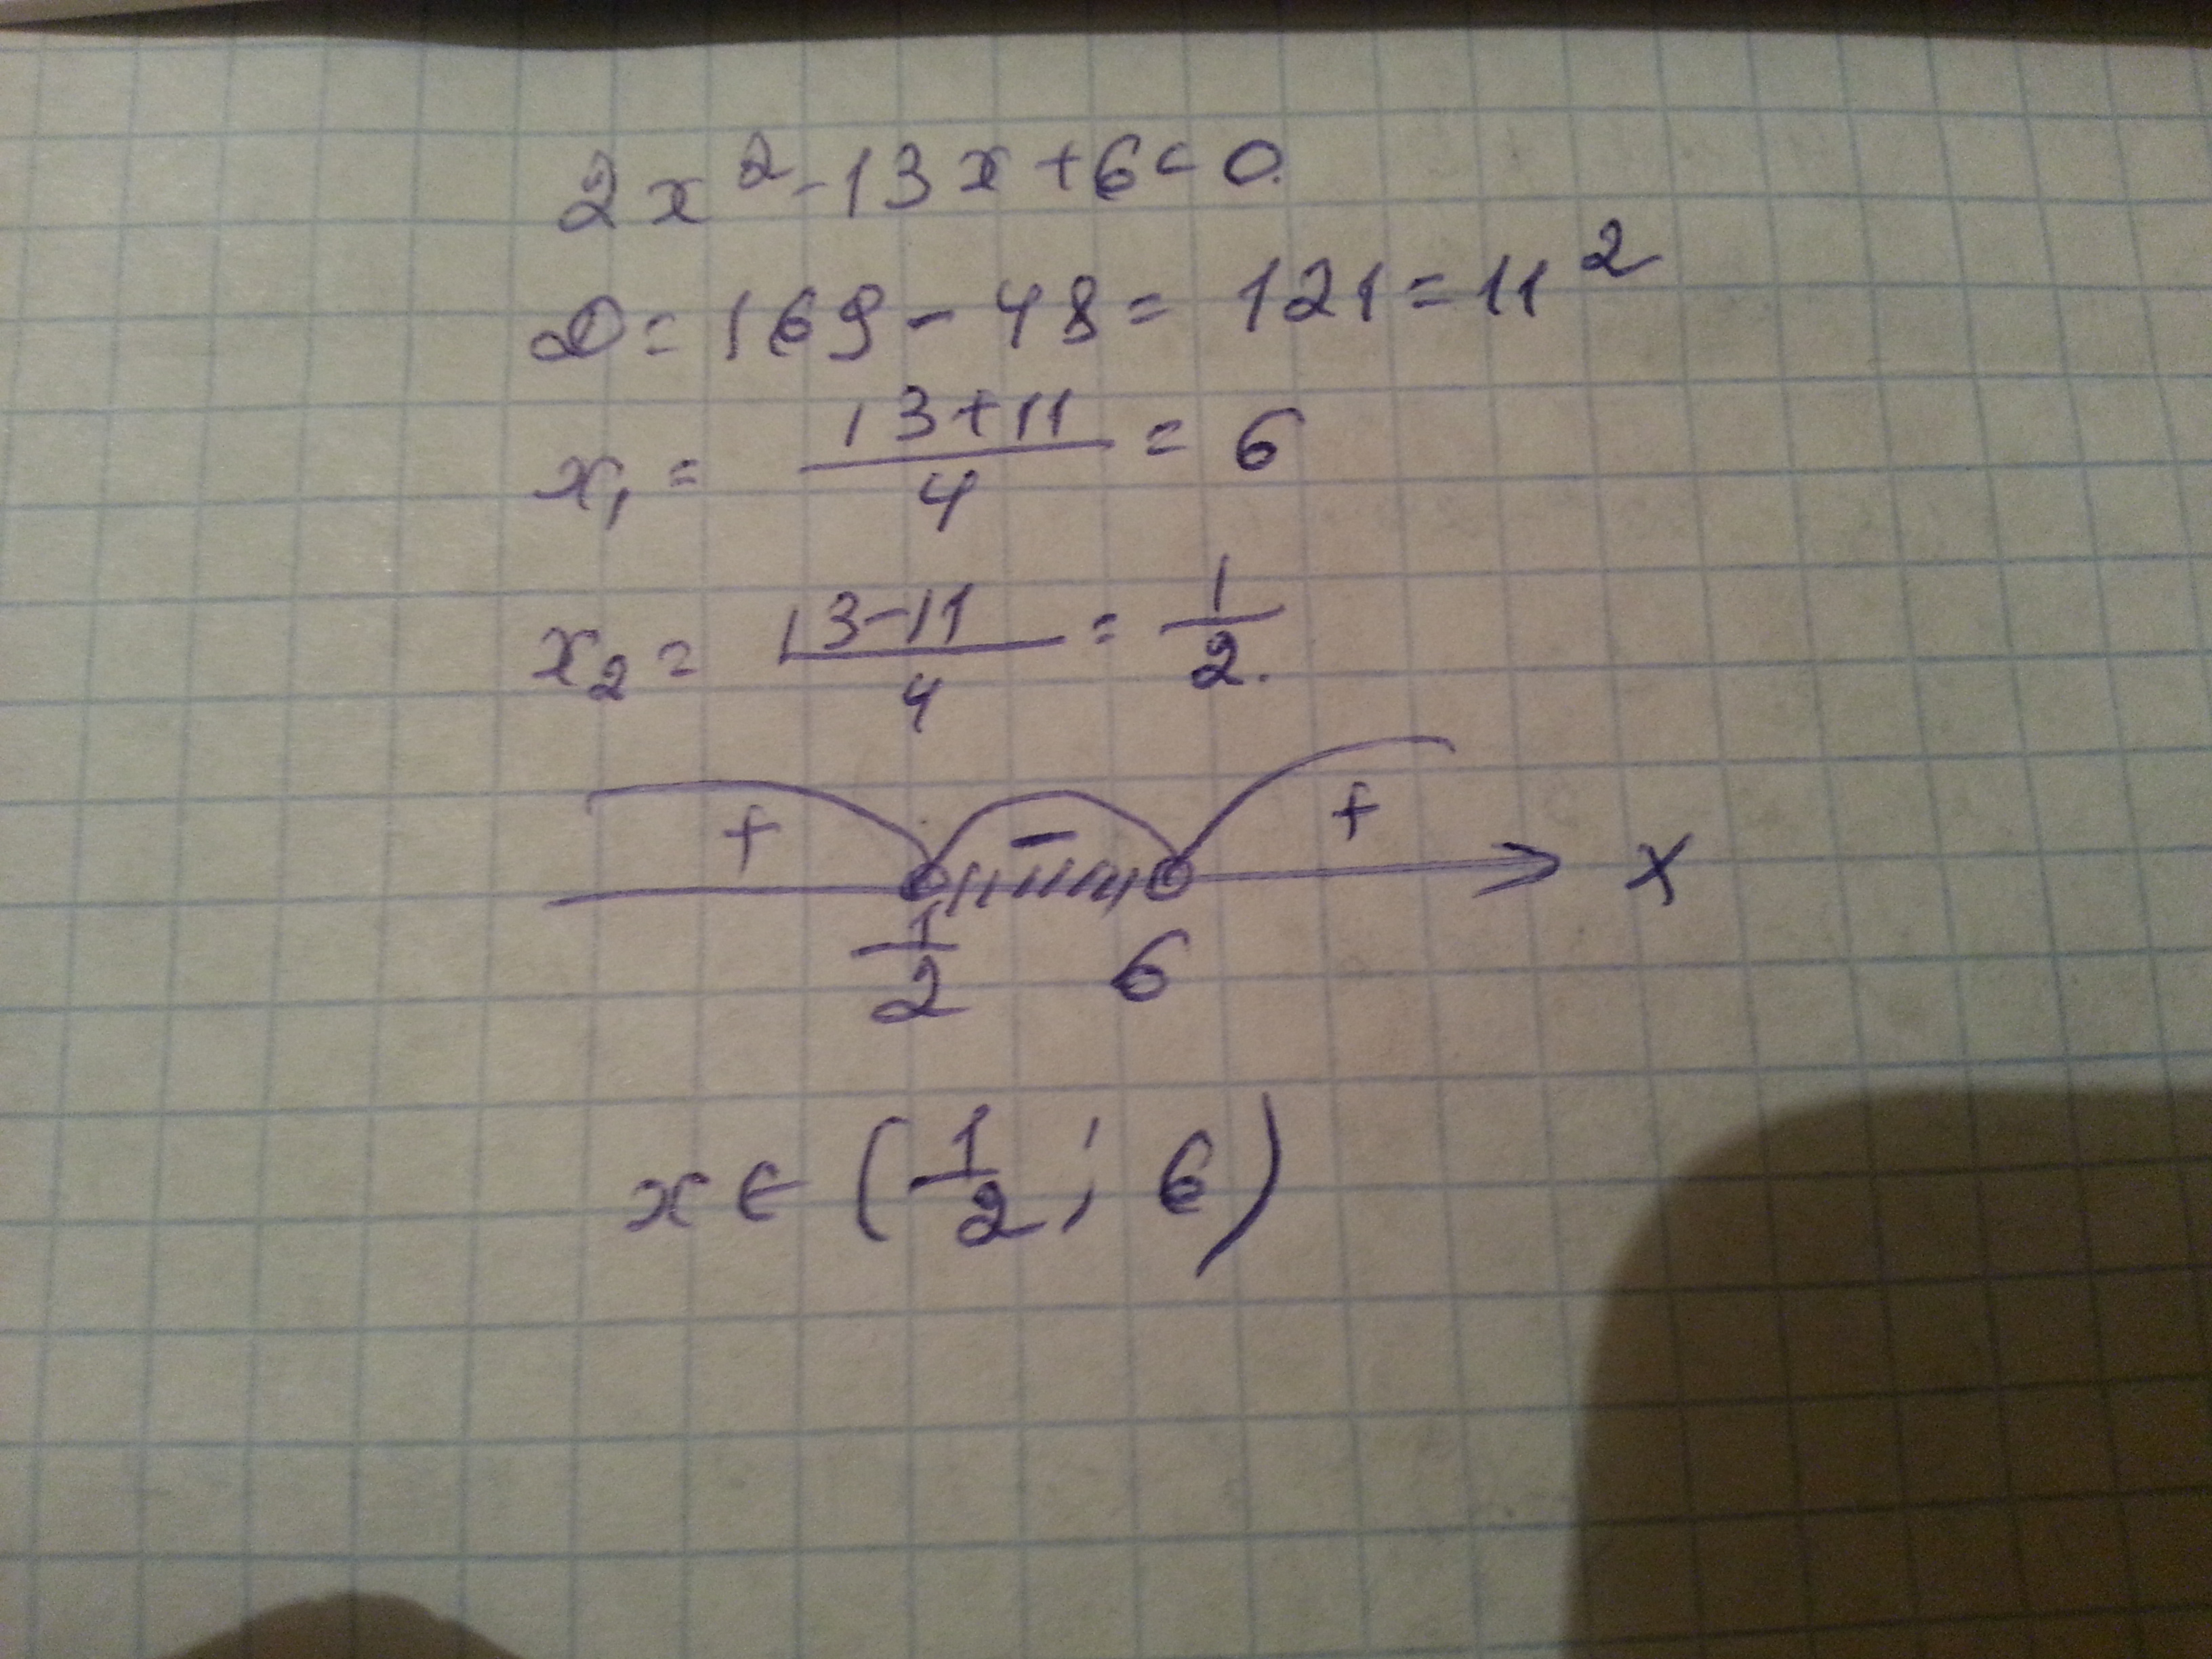 2x² - 13x + 6 = 0.
D = 169 - 48 = 121 = 11²
x₁ = (13+11)/4 = 6
x₂ = (13-11)/4 = 1/2.
+ - +
1/2 6 x
x ∈ (1/2; 6)